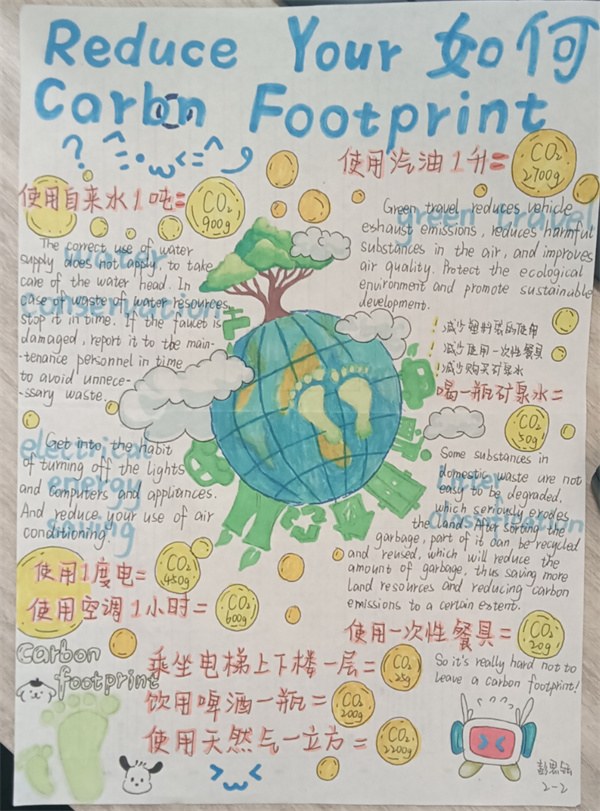 Reduce Your 如何
Carbon Footprint
使用汽油1升=
CO₂
2700g
使用自来水1吨=
CO₂
900g
green travel
Green travel reduces vehicle
exhaust emissions, reduces harmful
substances in the air, and improves
air quality. Protect the ecological
environment and promote sustainable
development.
water
conservation
The correct use of water
supply does not apply, to take
care of the water head. In
case of waste of water resources,
stop it in time. If the faucet is
damaged, report it to the main-
-tenance personnel in time
to avoid unnece-
-ssary waste.
!减少塑料袋的使用
!减少使用一次性餐具
!减少购买矿泉水
喝一瓶矿泉水=
CO₂
50g
electrical
energy
saving
Get into the habit
of turning off the lights
and computers and appliances.
And reduce your use of air
conditioning.
Some substances in
domestic waste are not
easy to be degraded,
which seriously erodes
the land. After sorting the
garbage, part of it can be recycled
and reused, which will reduce the
amount of garbage, thus saving more
land resources and reducing carbon
emissions to a certain extent.
使用1度电=
CO₂
450g
使用空调1小时=
CO₂
600g
使用一次性餐具=
CO₂
20g
carbon
footprint
乘坐电梯上下楼一层=
CO₂
25g
饮用啤酒一瓶=
CO₂
200g
使用天然气一立方=
CO₂
2200g
So it's really hard not to
leave a carbon footprint!
2-2